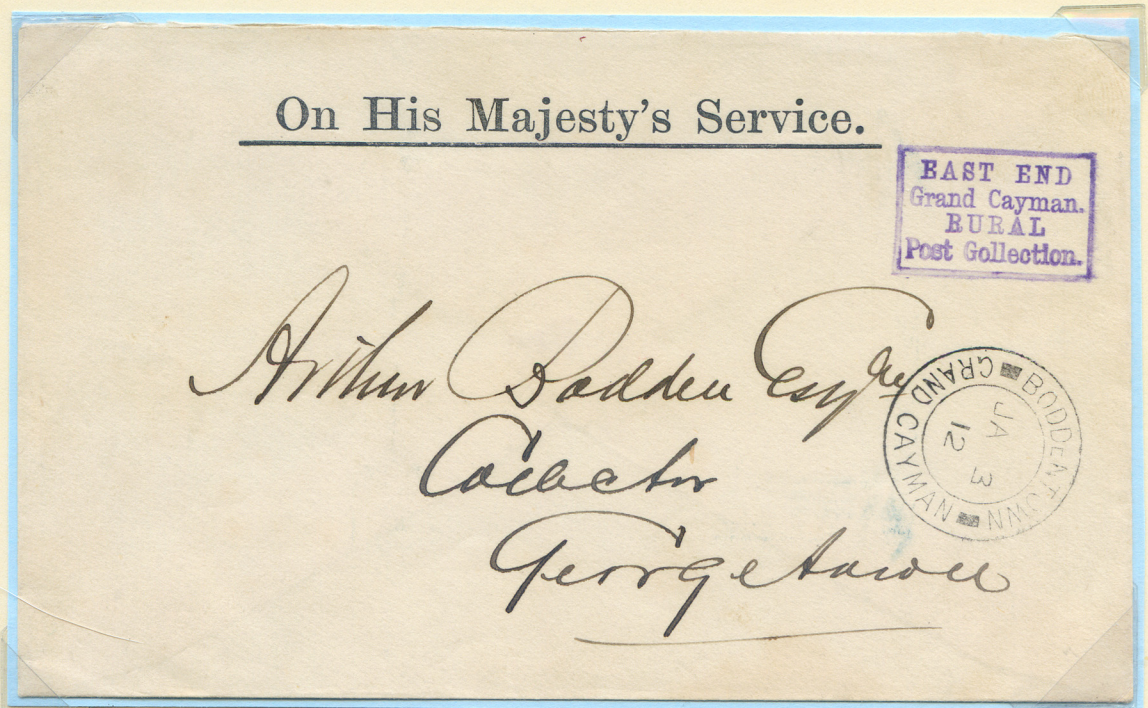 On His Majesty's Service.
EAST END
Grand Cayman.
RURAL
Post Gollection.
Arthur Bodden Esqre
Collector
Georgetown
BODDENTOWN
GRAND CAYMAN
JA 3
12